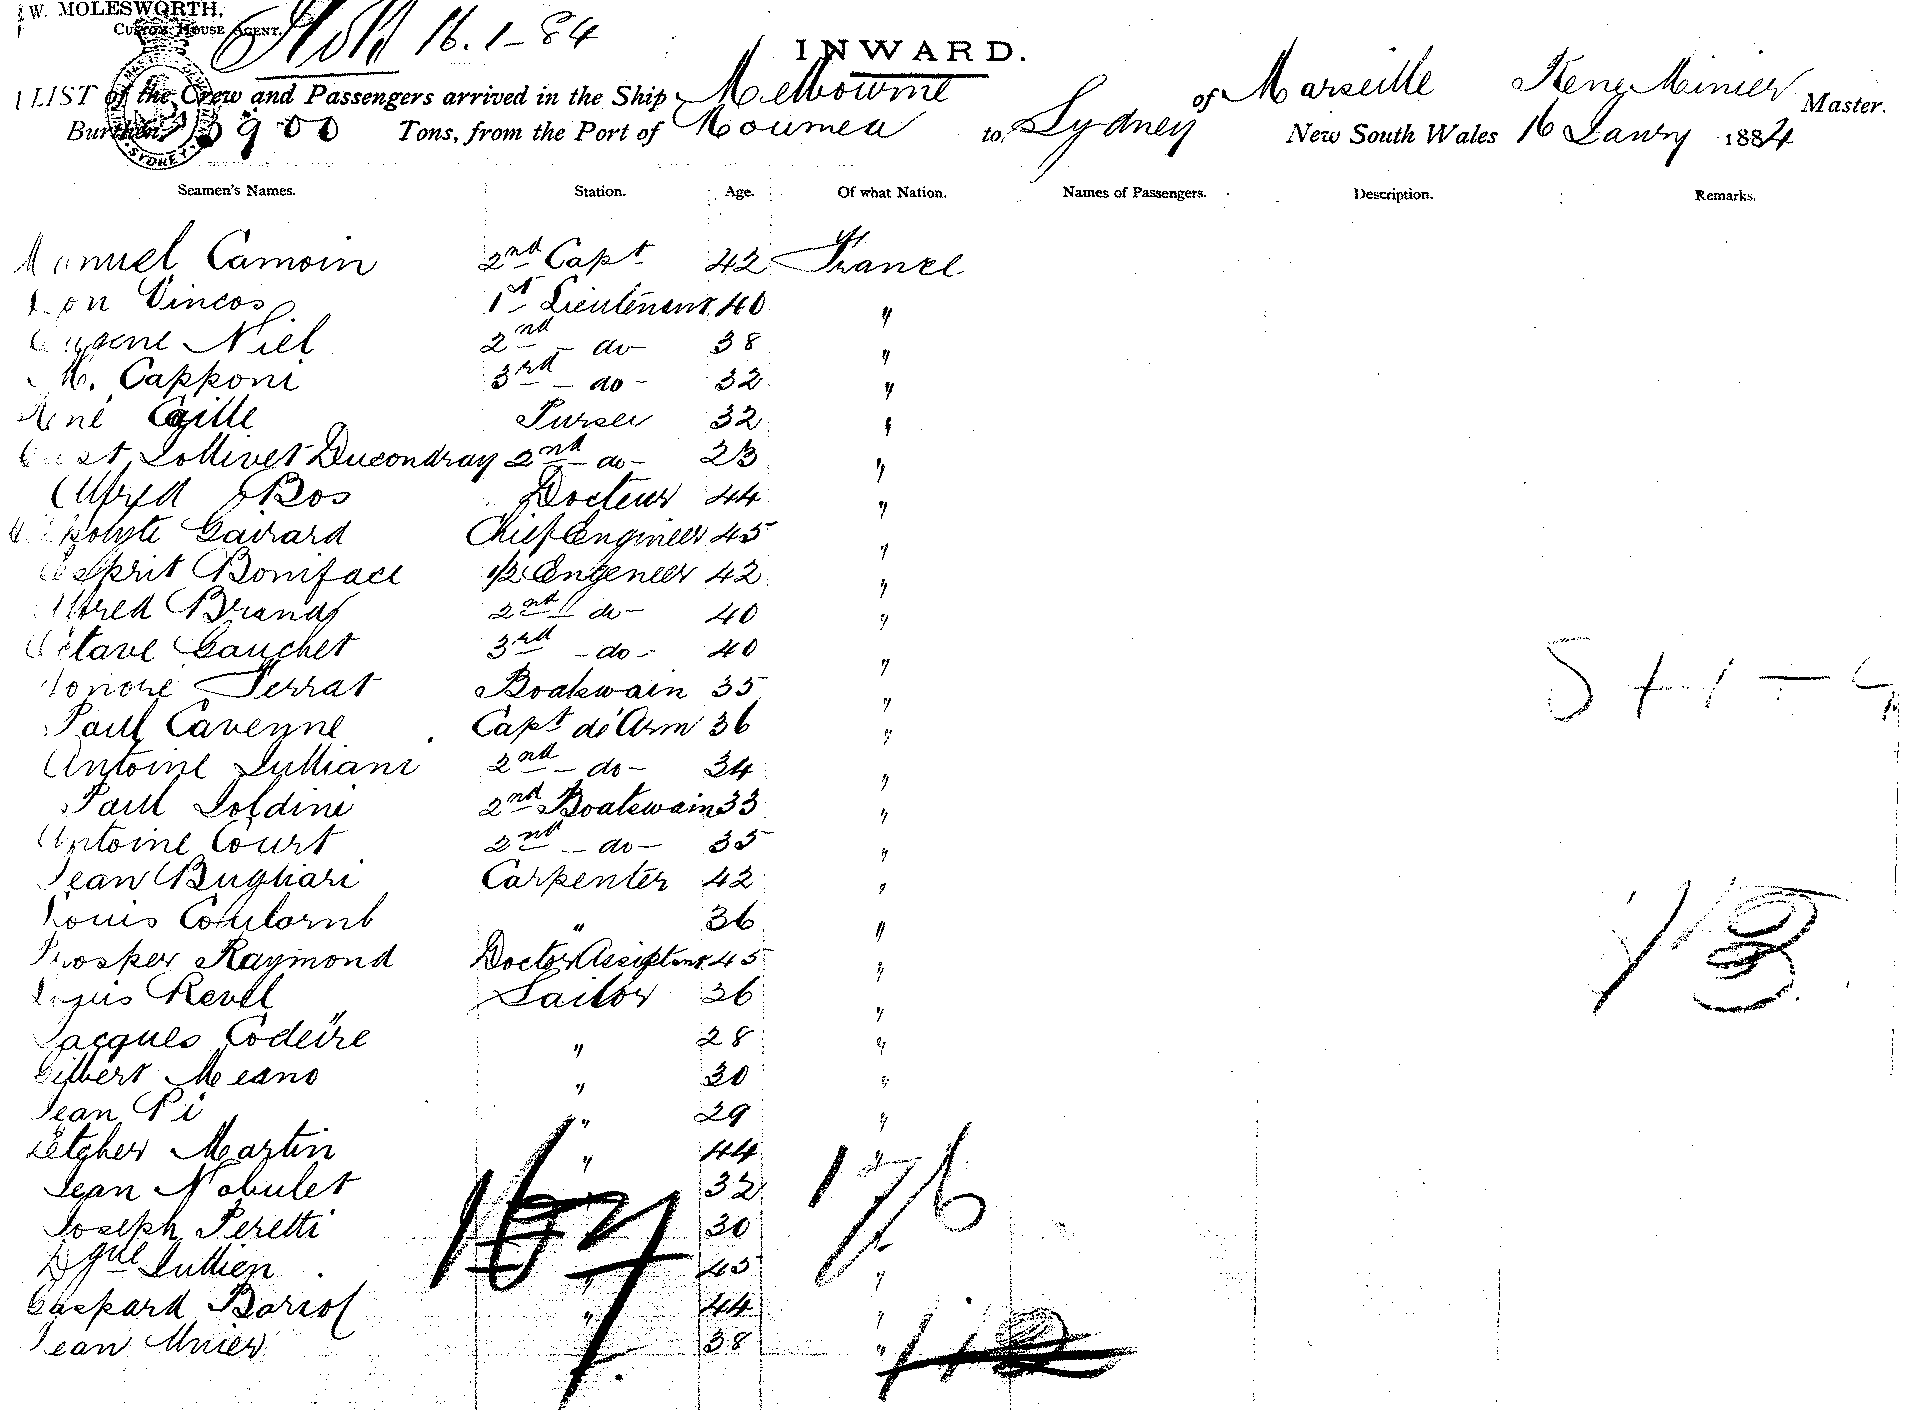 W. MOLESWORTH,
CUSTOM HOUSE AGENT.
16.1-84
INWARD.
LIST of the Crew and Passengers arrived in the Ship Melbourne of Marseille Rene Minier Master.
Burthen 3900 Tons, from the Port of Noumea to Sydney New South Wales 16 Janry 1884
SYDNEY
Seamen's Names. Station. Age. Of what Nation. Names of Passengers. Description. Remarks.
Manuel Camoin 2nd Capt 42 France
Vincos 1st Lieutenant 40 "
Eugene Niel 2nd - do 38 "
M. Capponi 3rd - do - 32 "
René Caille Purser 32 "
Lollivet Ducondray 2nd - do - 23 "
Alfred Bos Docteur 44 "
Hippolyte Gairard Chief Engineer 45 "
Esprit Boniface 1/2 Engeneer 42 "
Alfred Brand 2nd do - 40 "
Octave Gauchet 3rd - do - 40 "
Honoré Ferrat Boatswain 35 "
Paul Cavenne Capt de Arm 36 "
Antoine Julliani 2nd - do - 34 "
Paul Loldini 2nd Boatswain 33 "
Antoine Court 2nd - do - 35 "
Jean Bugliari Carpenter 42 "
Louis Coulomb " 36 "
Prosper Raymond Doctor Assistant 45 "
Louis Revel Sailor 36 "
Jacques Codeïre " 28 "
Gilbert Meano " 30 "
Jean Pi " 29 "
Letcher Martin " 44 "
Jean Nobulet 32
Joseph Peretti 30
Dque Jullien " 45 "
Gaspard Bariol " 44 "
Jean Unier 38 "
167
176